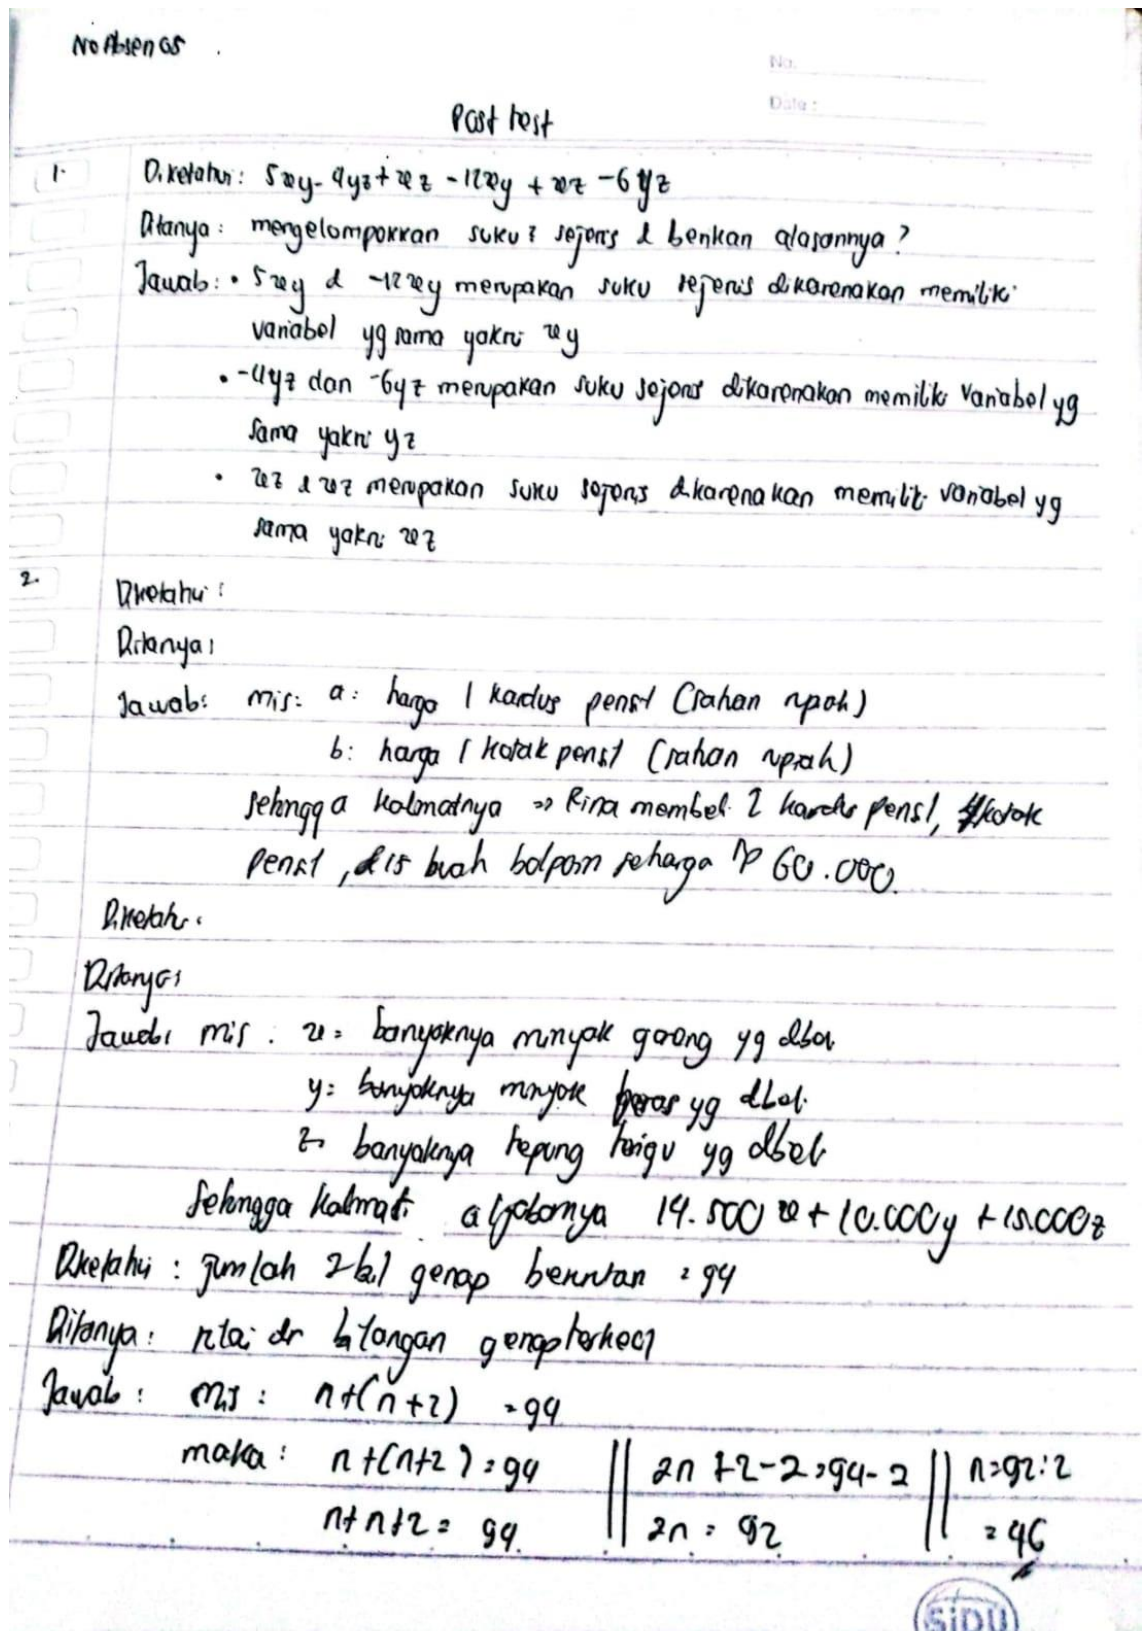 No Absen 05
No.
Date :
Post test
1. Diketahui: 5xy - 4yz + xz - 12xy + xz - 6yz
Ditanya: mengelompokkan suku² sejenis & berikan alasannya?
Jawab: • 5xy & -12xy merupakan suku sejenis dikarenakan memiliki
variabel yg sama yakni xy
• -4yz dan -6yz merupakan suku sejenis dikarenakan memiliki variabel yg
sama yakni yz
• xz & xz merupakan suku sejenis dikarenakan memiliki variabel yg
sama yakni xz
2. Diketahui:
Ditanya:
Jawab: mis: a: harga 1 kardus pensil (satuan rupiah)
b: harga 1 kotak pensil (satuan rupiah)
sehingga kalimatnya => Rina membeli 2 kardus pensil, kotak
pensil, & 15 buah bolpoin seharga Rp 60.000.
Diketahui:
Ditanya:
Jawab: mis: x = banyaknya minyak goreng yg dibeli
y: banyaknya minyak beras yg dibeli
z: banyaknya tepung terigu yg dibeli
Sehingga kalimat aljabarnya 14.500x + 10.000y + 15.000z
Diketahui: jumlah 2 bil genap berurutan = 94
Ditanya: nilai dr bilangan genap terkecil
Jawab: mis: n+(n+2) = 94
maka: n+(n+2) = 94 || 2n+2-2=94-2 || n=92:2
n+n+2 = 94. || 2n = 92 || = 46
SiDU